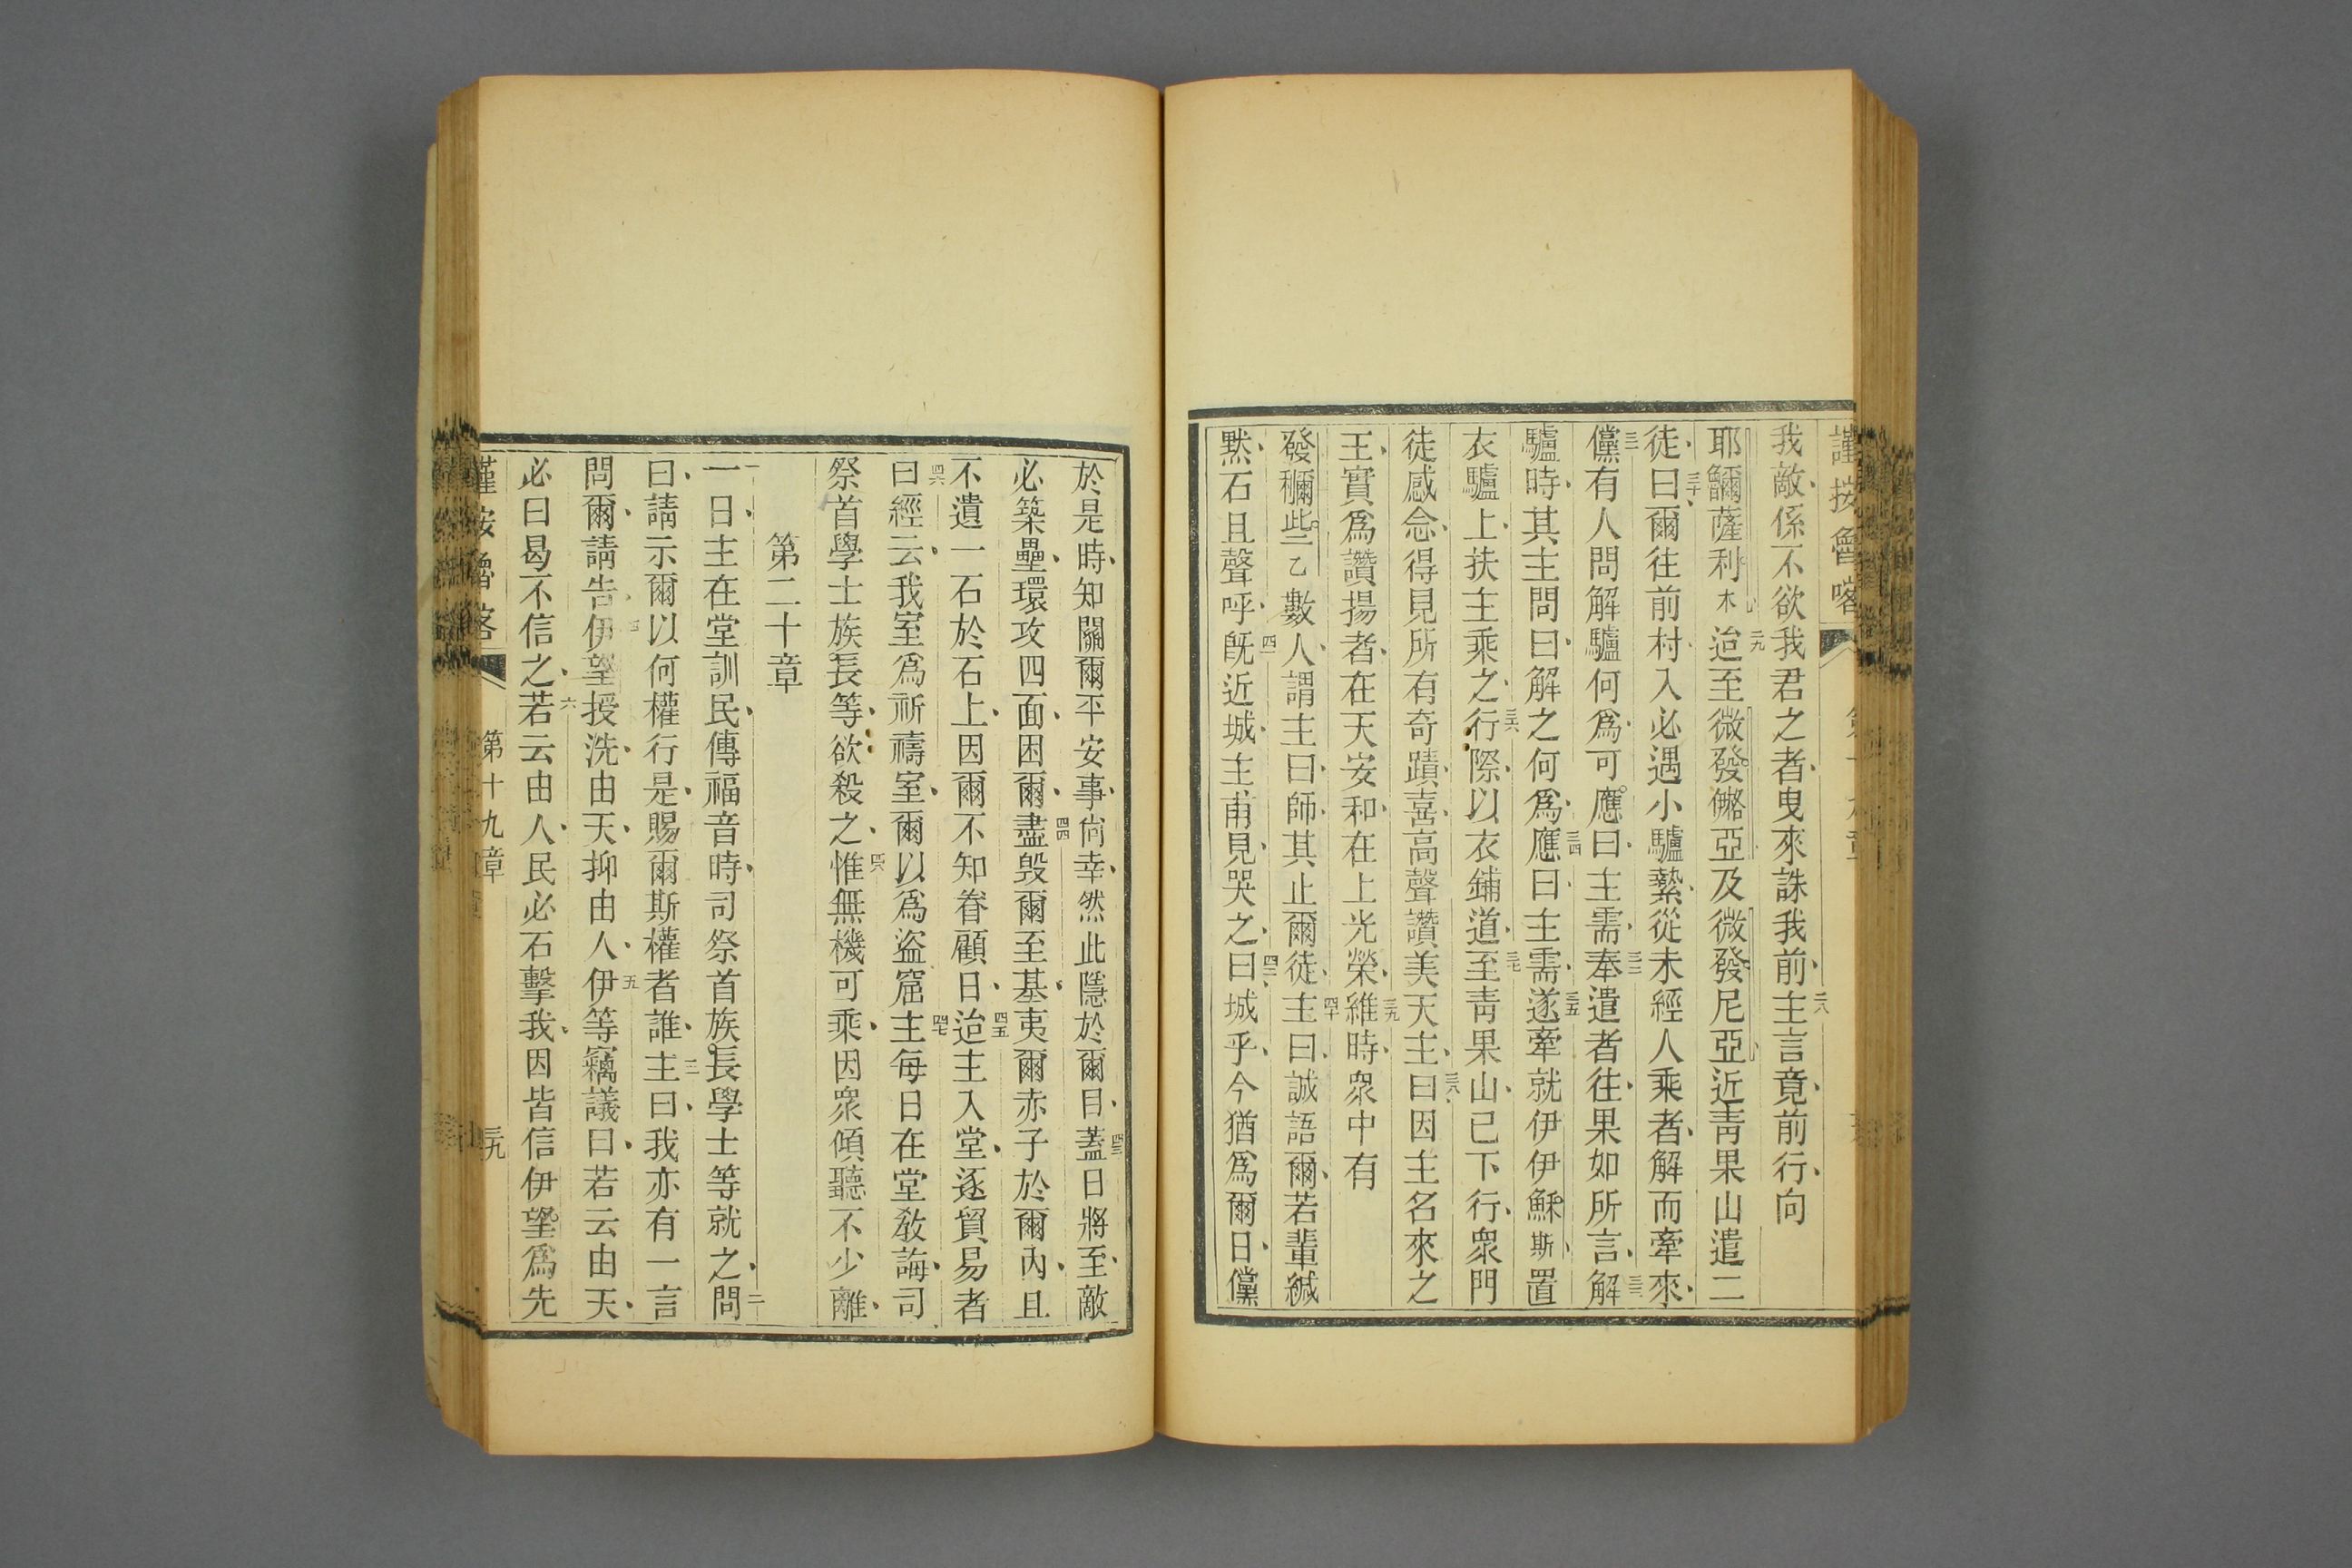 謹按魯喀
我敵係不欲我君之者曳來誅我前二八主言竟前行向
耶𩐎薩利木二九迨至微發亞及微發尼亞近靑果山遣二
徒三十曰爾往前村入必遇小驢縶從未經人乘者解而牽來
三一儻有人問解驢何爲可應曰主需三二奉遣者往果如所言三三解
驢時其主問曰解之何爲三四應曰主需三五遂牽就伊伊穌斯置
衣驢上扶主乘之三六行際以衣鋪道三七至靑果山已下行衆門
徒感念得見所有奇蹟喜高聲讚美天主三八曰因主名來之
王實爲讚揚者在天安和在上光榮三九維時衆中有
發穪些乙數人謂主曰師其止爾徒四十主曰誠語爾若輩緘
默石且聲呼四一旣近城主甫見哭之四二曰城乎今猶爲爾日儻
於是時知關爾平安事尙幸然此隱於爾目四三蓋日將至敵
必築壘環攻四面困爾四四盡毀爾至基夷爾赤子於爾內且
不遺一石於石上因爾不知眷顧日四五迨主入堂逐貿易者
四六曰經云我室爲祈禱室爾以爲盜窟四七主每日在堂敎誨司
祭首學士族長等欲殺之四八惟無機可乘因衆傾聽不少離
第二十章
一一日主在堂訓民傳福音時司祭首族長學士等就之二問
曰請示爾以何權行是賜爾斯權者誰三主曰我亦有一言
問爾請告四伊望授洗由天抑由人五伊等竊議曰若云由天
必曰曷不信之六若云由人民必石擊我因皆信伊望爲先
謹按魯喀 第十九章 三九